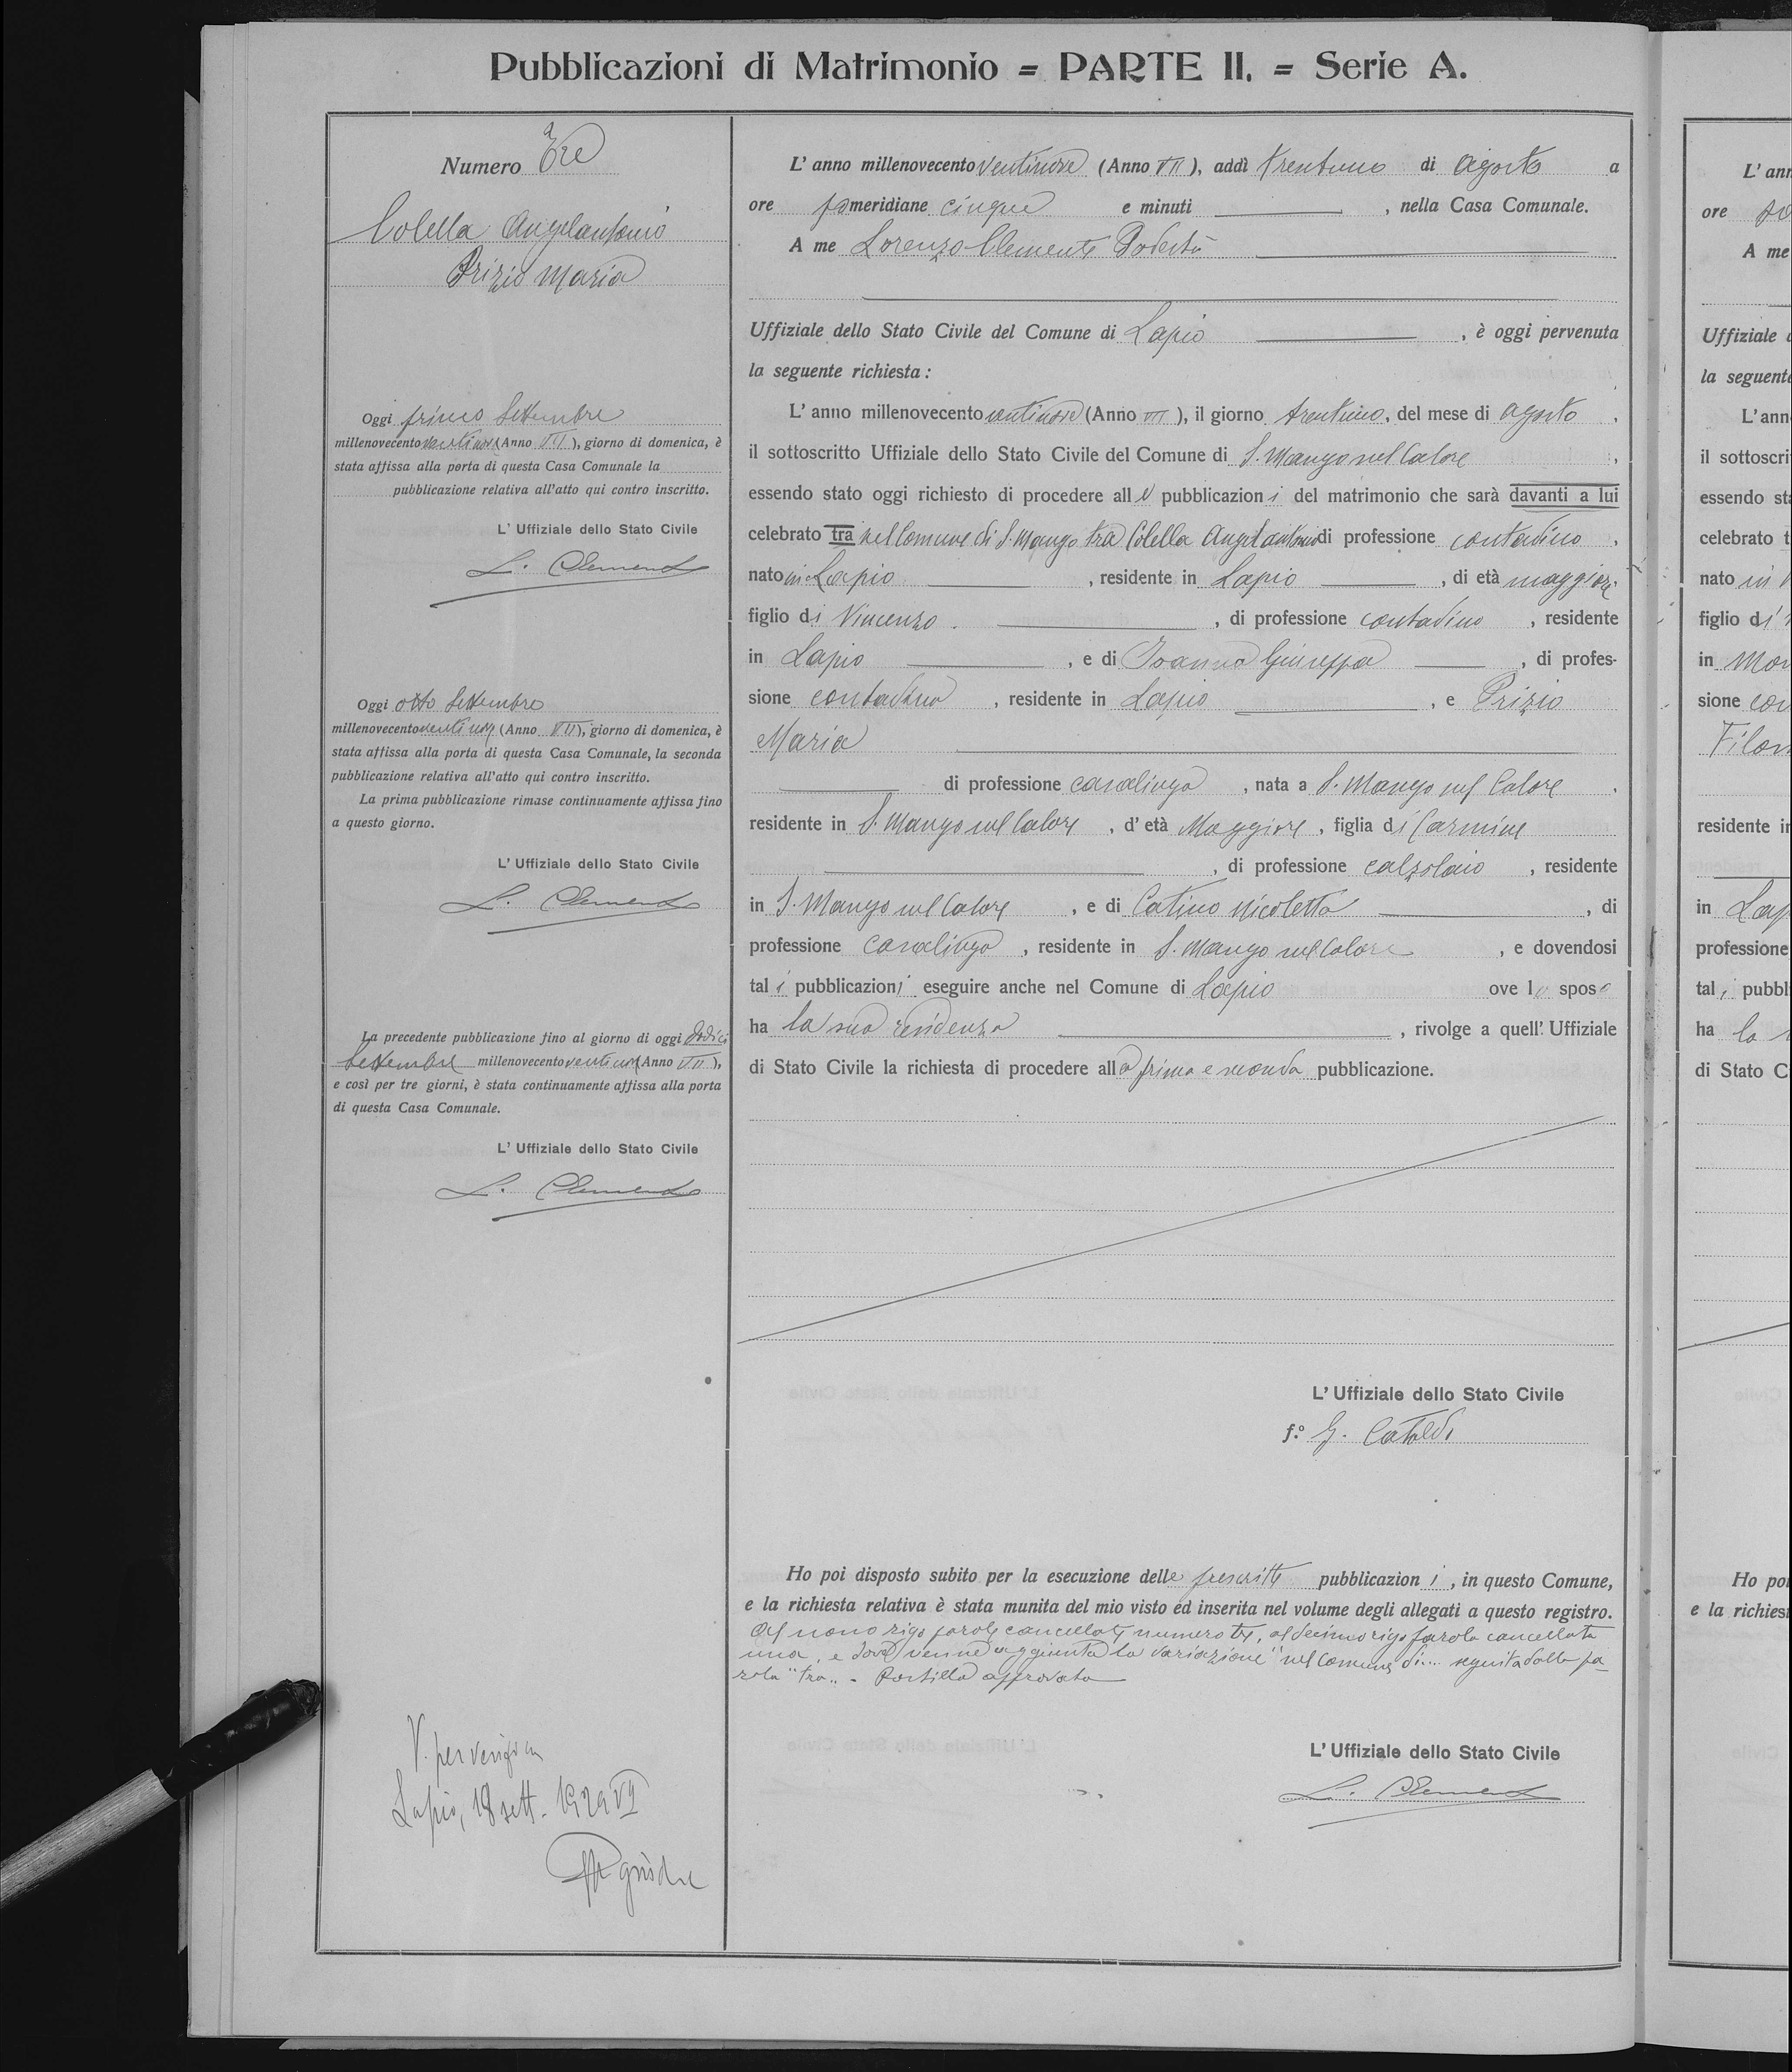 Pubblicazioni di Matrimonio = PARTE II. = Serie A.
Numero Tre
Colella Angelantonio
Prizio Maria
Oggi primo Settembre
millenovecentoventinove (Anno VII), giorno di domenica, è
stata affissa alla porta di questa Casa Comunale la
pubblicazione relativa all'atto qui contro inscritto.
L' Uffiziale dello Stato Civile
L. Clemente
Oggi otto Settembre
millenovecentoventinove (Anno VII), giorno di domenica, è
stata affissa alla porta di questa Casa Comunale, la seconda
pubblicazione relativa all'atto qui contro inscritto.
La prima pubblicazione rimase continuamente affissa fino
a questo giorno.
L' Uffiziale dello Stato Civile
L. Clemente
La precedente pubblicazione fino al giorno di oggi dodici
Settembre millenovecentoventinove (Anno VII),
e così per tre giorni, è stata continuamente affissa alla porta
di questa Casa Comunale.
L' Uffiziale dello Stato Civile
L. Clemente
V. per verifica
Lapio, 18 sett. 1929 VII
L' anno millenovecentoventinove (Anno VII), addì trentuno di agosto a
ore pomeridiane cinque e minuti , nella Casa Comunale.
A me Lorenzo Clemente Podestà
Uffiziale dello Stato Civile del Comune di Lapio , è oggi pervenuta
la seguente richiesta :
L' anno millenovecentoventinove (Anno VII), il giorno trentuno, del mese di agosto ,
il sottoscritto Uffiziale dello Stato Civile del Comune di S. Mango sul Calore ,
essendo stato oggi richiesto di procedere alle pubblicazioni del matrimonio che sarà davanti a lui
celebrato tra nel Comune di S. Mango tra Colella Angelantonio di professione contadino ,
nato in Lapio , residente in Lapio , di età maggiore
figlio di Vincenzo , di professione contadino , residente
in Lapio , e di Ioanna Giuseppa , di profes-
sione contadina , residente in Lapio , e Prizio
Maria
di professione casalinga , nata a S. Mango sul Calore ,
residente in S. Mango sul Calore , d' età Maggiore , figlia di Carmine
, di professione calzolaio , residente
in S. Mango sul Calore , e di Catino Nicoletta , di
professione casalinga , residente in S. Mango sul Calore , e dovendosi
tali pubblicazioni eseguire anche nel Comune di Lapio ove lo sposo
ha la sua residenza , rivolge a quell' Uffiziale
di Stato Civile la richiesta di procedere alla prima e seconda pubblicazione.
L' Uffiziale dello Stato Civile
f.º G. Cataldi
Ho poi disposto subito per la esecuzione delle prescritte pubblicazioni , in questo Comune,
e la richiesta relativa è stata munita del mio visto ed inserita nel volume degli allegati a questo registro.
Al nono rigo parole cancellate numero tre, al decimo rigo parola cancellata
una, e dove venne aggiunta la variazione "nel Comune di... seguita dalla pa-
rola "tra". - Postilla approvata
L' Uffiziale dello Stato Civile
L. Clemente
L' ann
ore
A me
Uffiziale
la seguent
L' ann
il sottoscri
essendo st
celebrato t
nato in
figlio di
in
sione con
residente in
in Lap
professione
tali pubbl
ha la
di Stato C
Ho poi
e la richies